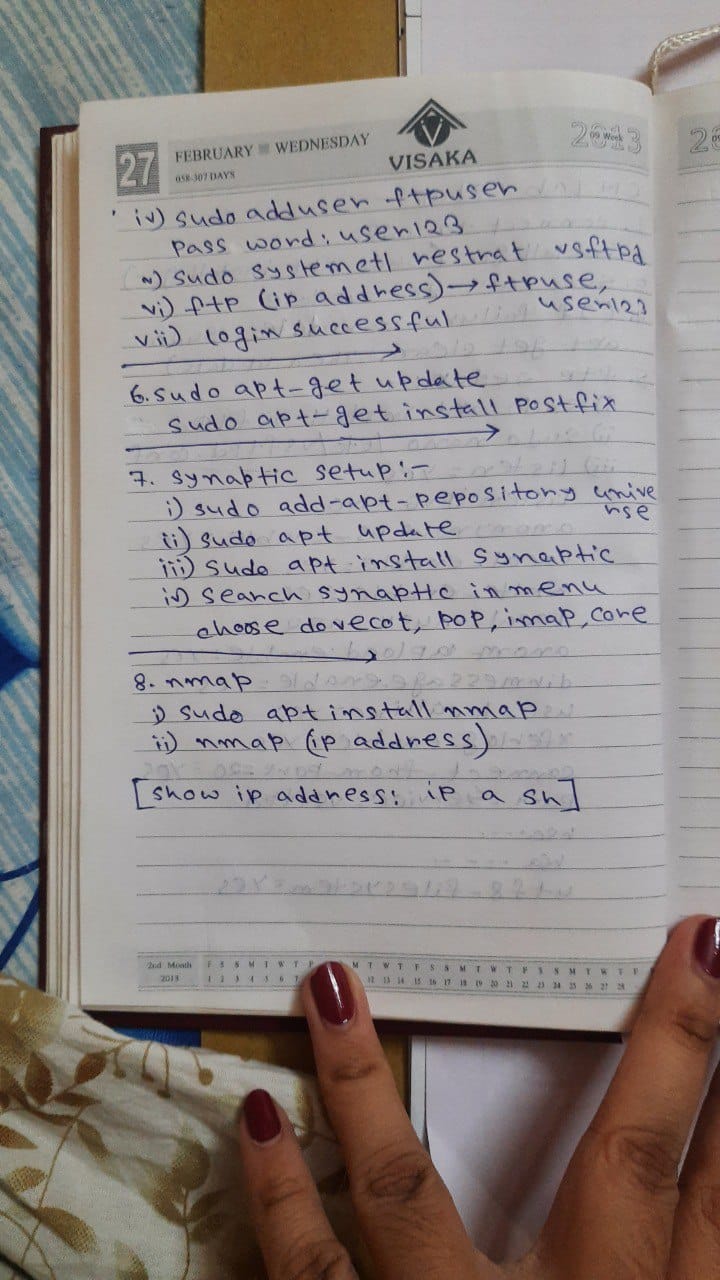 27
FEBRUARY WEDNESDAY
058-307 DAYS
VISAKA
09 Week
2013
iv) sudo adduser ftpuser
pass word: user123
v) sudo systemetl restrat vsftpd
vi) ftp (ip address)→ftpuse,
user123
vii) login successful
6. sudo apt-get update
sudo apt-get install postfix
7. synaptic setup:-
i) sudo add-apt-pepository unive
rse
ii) sudo apt update
iii) sudo apt install synaptic
iv) search synaptic in menu
choose dovecot, pop, imap, core
8. nmap
i) sudo apt install nmap
ii) nmap (ip address)
[show ip address: ip a sh]
2nd Month
2013